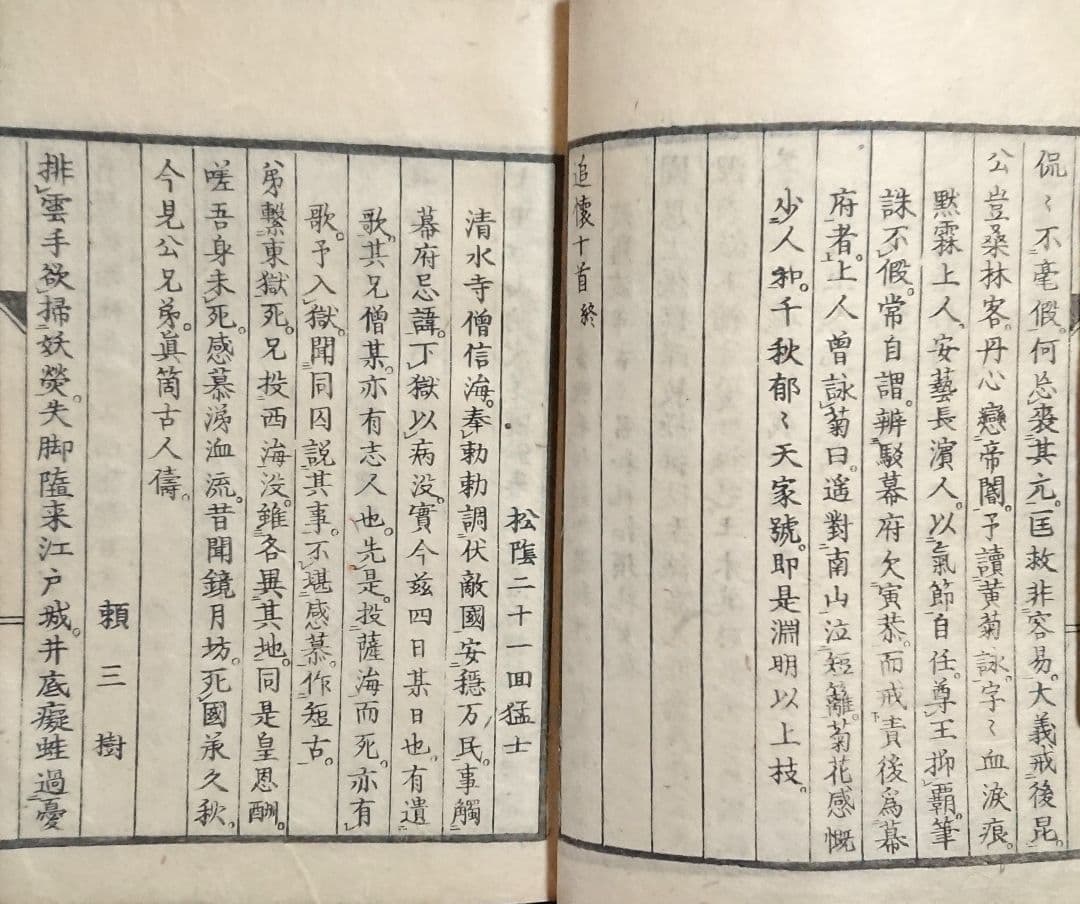 侃〻不毫假。何忘喪其元。匡救非容易。大義戒後昆。
公豈桑林客。丹心戀帝閽。予讀黄菊詠。字〻血涙痕。
黙霖上人。安藝長濱人。以氣節自任。尊王抑覇。筆
誅不假。常自謂。辨駁幕府欠寅恭。而戒責後爲幕
府者。上人曾詠菊曰。遥對南山泣短籬。菊花感慨
少人和。千秋郁〻天家號。即是淵明以上技。
追懐十首終
松陰二十一回猛士
清水寺僧信海。奉勅勅調伏敵國安穏万民。事觸
幕府忌諱。下獄以病没。實今茲四日某日也。有遺
歌。其兄僧某。亦有志人也。先是。投薩海而死。亦有
歌。予入獄。聞同囚説其事。不堪感慕。作短古。
弟繋東獄死。兄投西海没。雖各異其地。同是皇恩酬。
嗟吾身未死。感慕涕血流。昔聞鏡月坊。死國承久秋。
今見公兄弟。眞箇古人儔。
頼三樹
排雲手欲掃妖熒。失脚墮来江戸城。井底癡蛙過憂